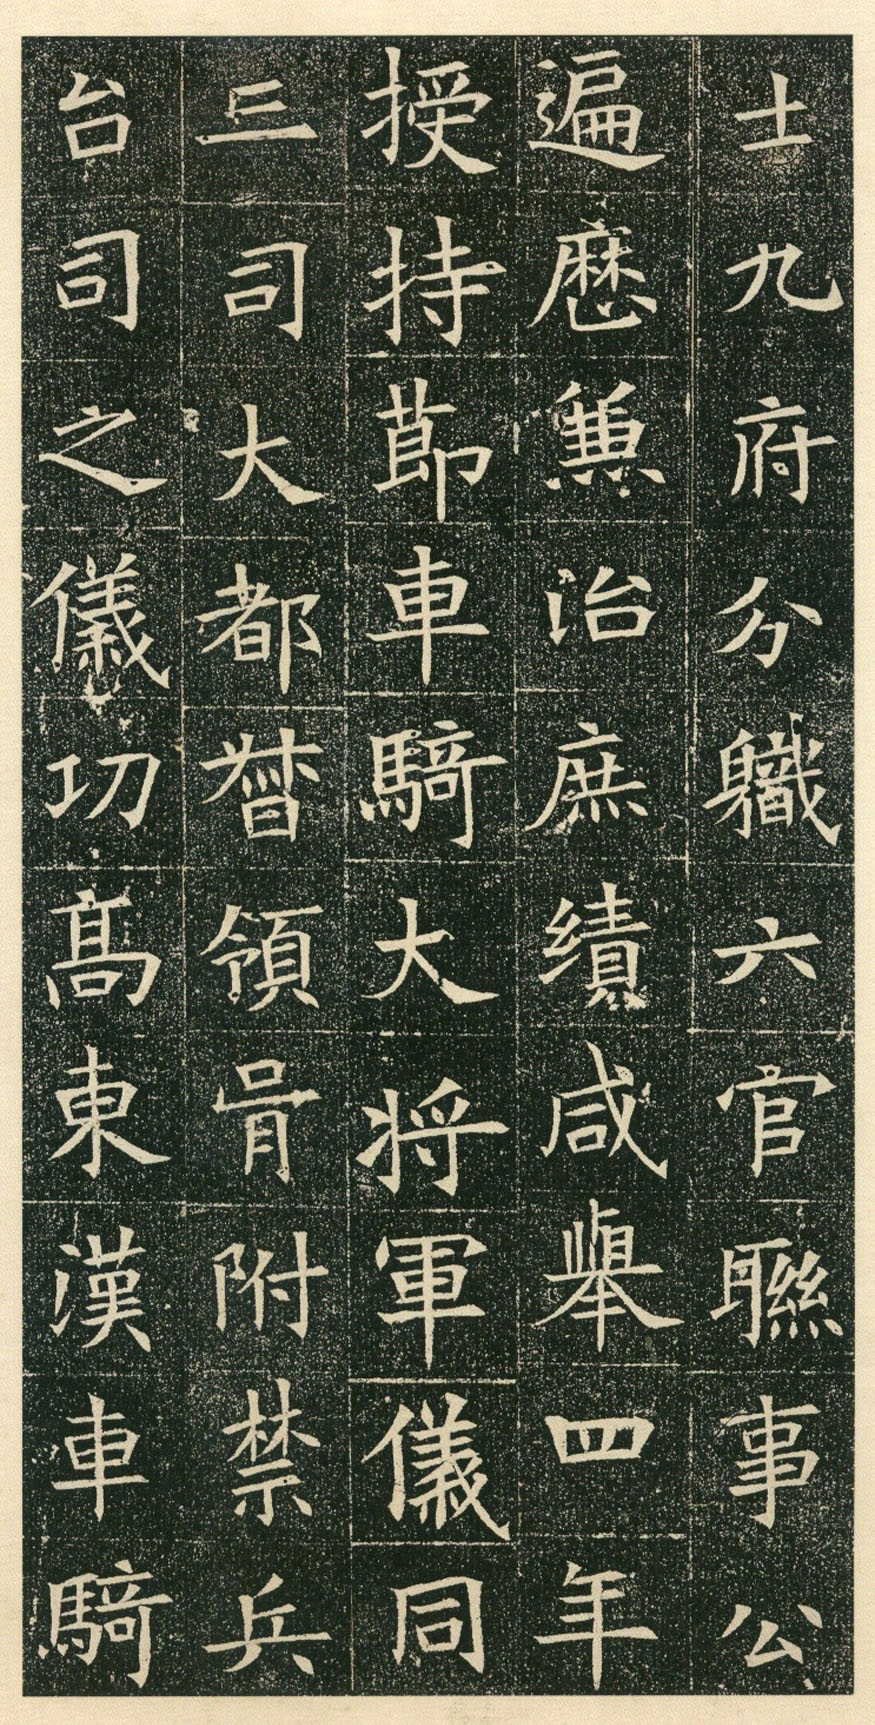 士九府分職六官聯事公
遍歷兼治庶績咸舉四年
授持節車騎大將軍儀同
三司大都督領胥附禁兵
台司之儀功高東漢車騎